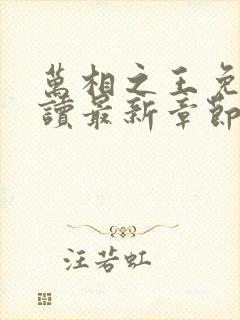 萬相之王免
讀最新章節
汪若虹